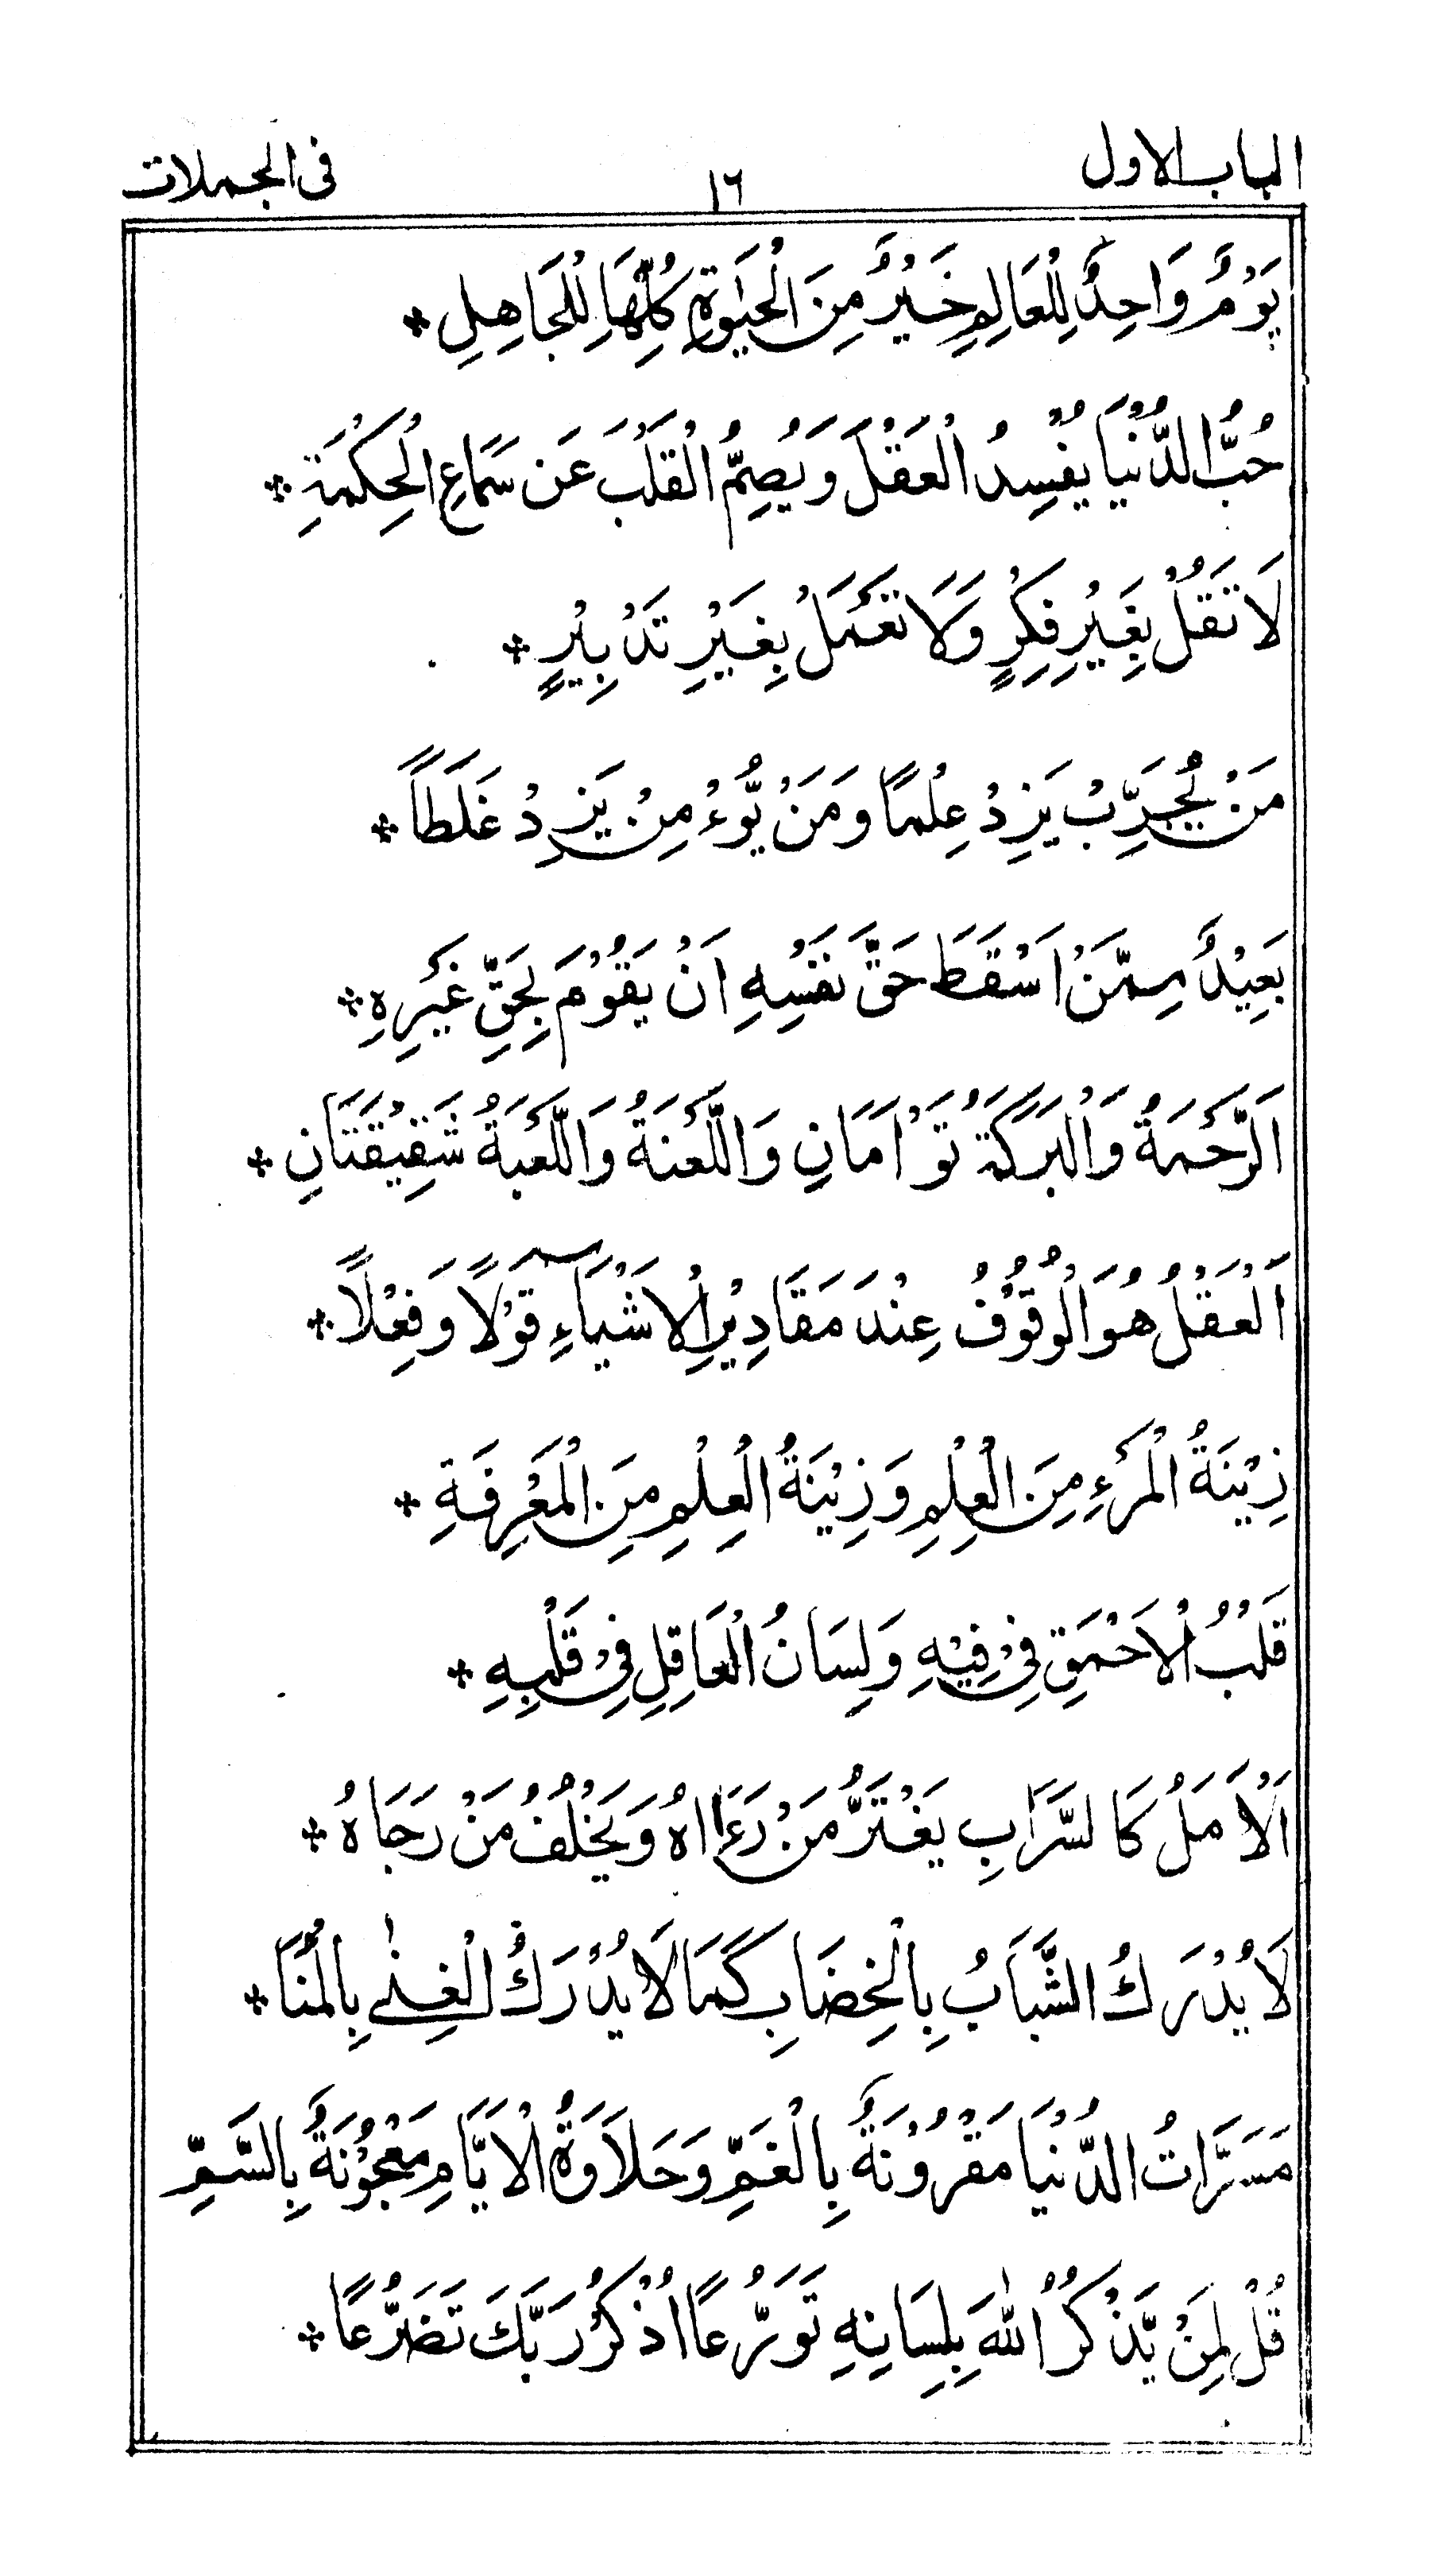 الباب الاول ١٦ فى الجملات
يَوْمٌ وَاحِدٌ لِلْعَالِمِ خَيْرٌ مِنَ الْحَيٰوةِ كُلِّهَا لِلْجَاهِلِ *
حُبُّ الدُّنْيَا يُفْسِدُ الْعَقْلَ وَيُصِمُّ الْقَلْبَ عَن سَمَاعِ الْحِكْمَةِ *
لَا تَقُلْ بِغَيْرِ فِكْرٍ وَلَا تَعْمَلْ بِغَيْرِ تَدْبِيْرٍ *
مَنْ يُجَرِّبْ يَزِدْ عِلْمًا وَمَنْ يُّؤْمِنْ يَزِدْ غَلَطًا *
بَعِيْدٌ مِمَّنْ اَسْقَطَ حَقَّ نَفْسِهِ اَنْ يَقُوْمَ بِحَقِّ غَيْرِهِ *
اَلرَّحْمَةُ وَالْبَرَكَةُ تَوْاَمَانِ وَاللَّعْنَةُ وَاللَّعْبَةُ شَقِيْقَتَانِ *
اَلْعَقْلُ هُوَ الْوُقُوْفُ عِنْدَ مَقَادِيْرِ الْاَشْيَآءِ قَوْلًا وَفِعْلًا *
زِيْنَةُ الْمَرْءِ مِنَ الْعِلْمِ وَزِيْنَةُ الْعِلْمِ مِنَ الْمَعْرِفَةِ *
قَلْبُ الْاَحْمَقِ فِيْ فِيْهِ وَلِسَانُ الْعَاقِلِ فِيْ قَلْبِهِ *
اَلْاَمَلُ كَالسَّرَابِ يَغْتَرُّ مَنْ رَءَاهُ وَيَخْلُفُ مَنْ رَجَاهُ *
لَا يُدْرَكُ الشَّبَابُ بِالْخِضَابِ كَمَا لَا يُدْرَكُ الْغِنٰى بِالْمُنَا *
مَسَرَّاتُ الدُّنْيَا مَقْرُوْنَةٌ بِالْغَمِّ وَحَلَاوَةُ الْاَيَّامِ مَعْجُوْنَةٌ بِالسَّمِّ
قُلْ لِمَنْ يَّذْكُرُ اللّٰهَ بِلِسَانِهِ تَوَرُّعًا اُذْكُرْ رَبَّكَ تَضَرُّعًا *